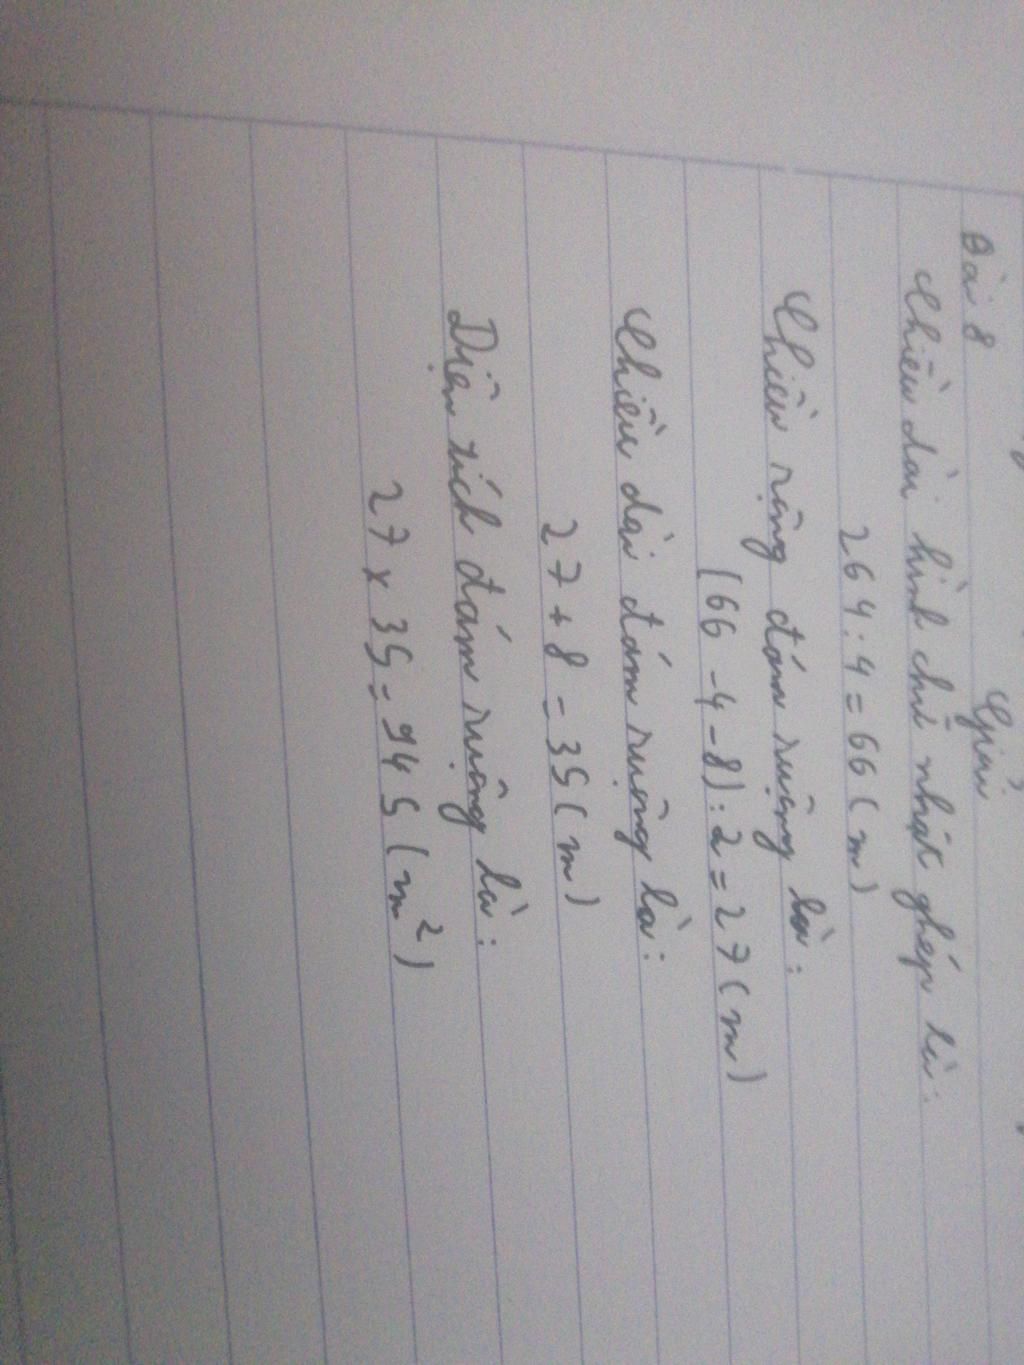 Bài 8
Giải
Chiều dài hình chữ nhật ghép là:
264 : 4 = 66 (m)
Chiều rộng đám ruộng là:
(66 - 4 - 8) : 2 = 27 (m)
Chiều dài đám ruộng là:
27 + 8 = 35 (m)
Diện tích đám ruộng là:
27 x 35 = 945 (m²)